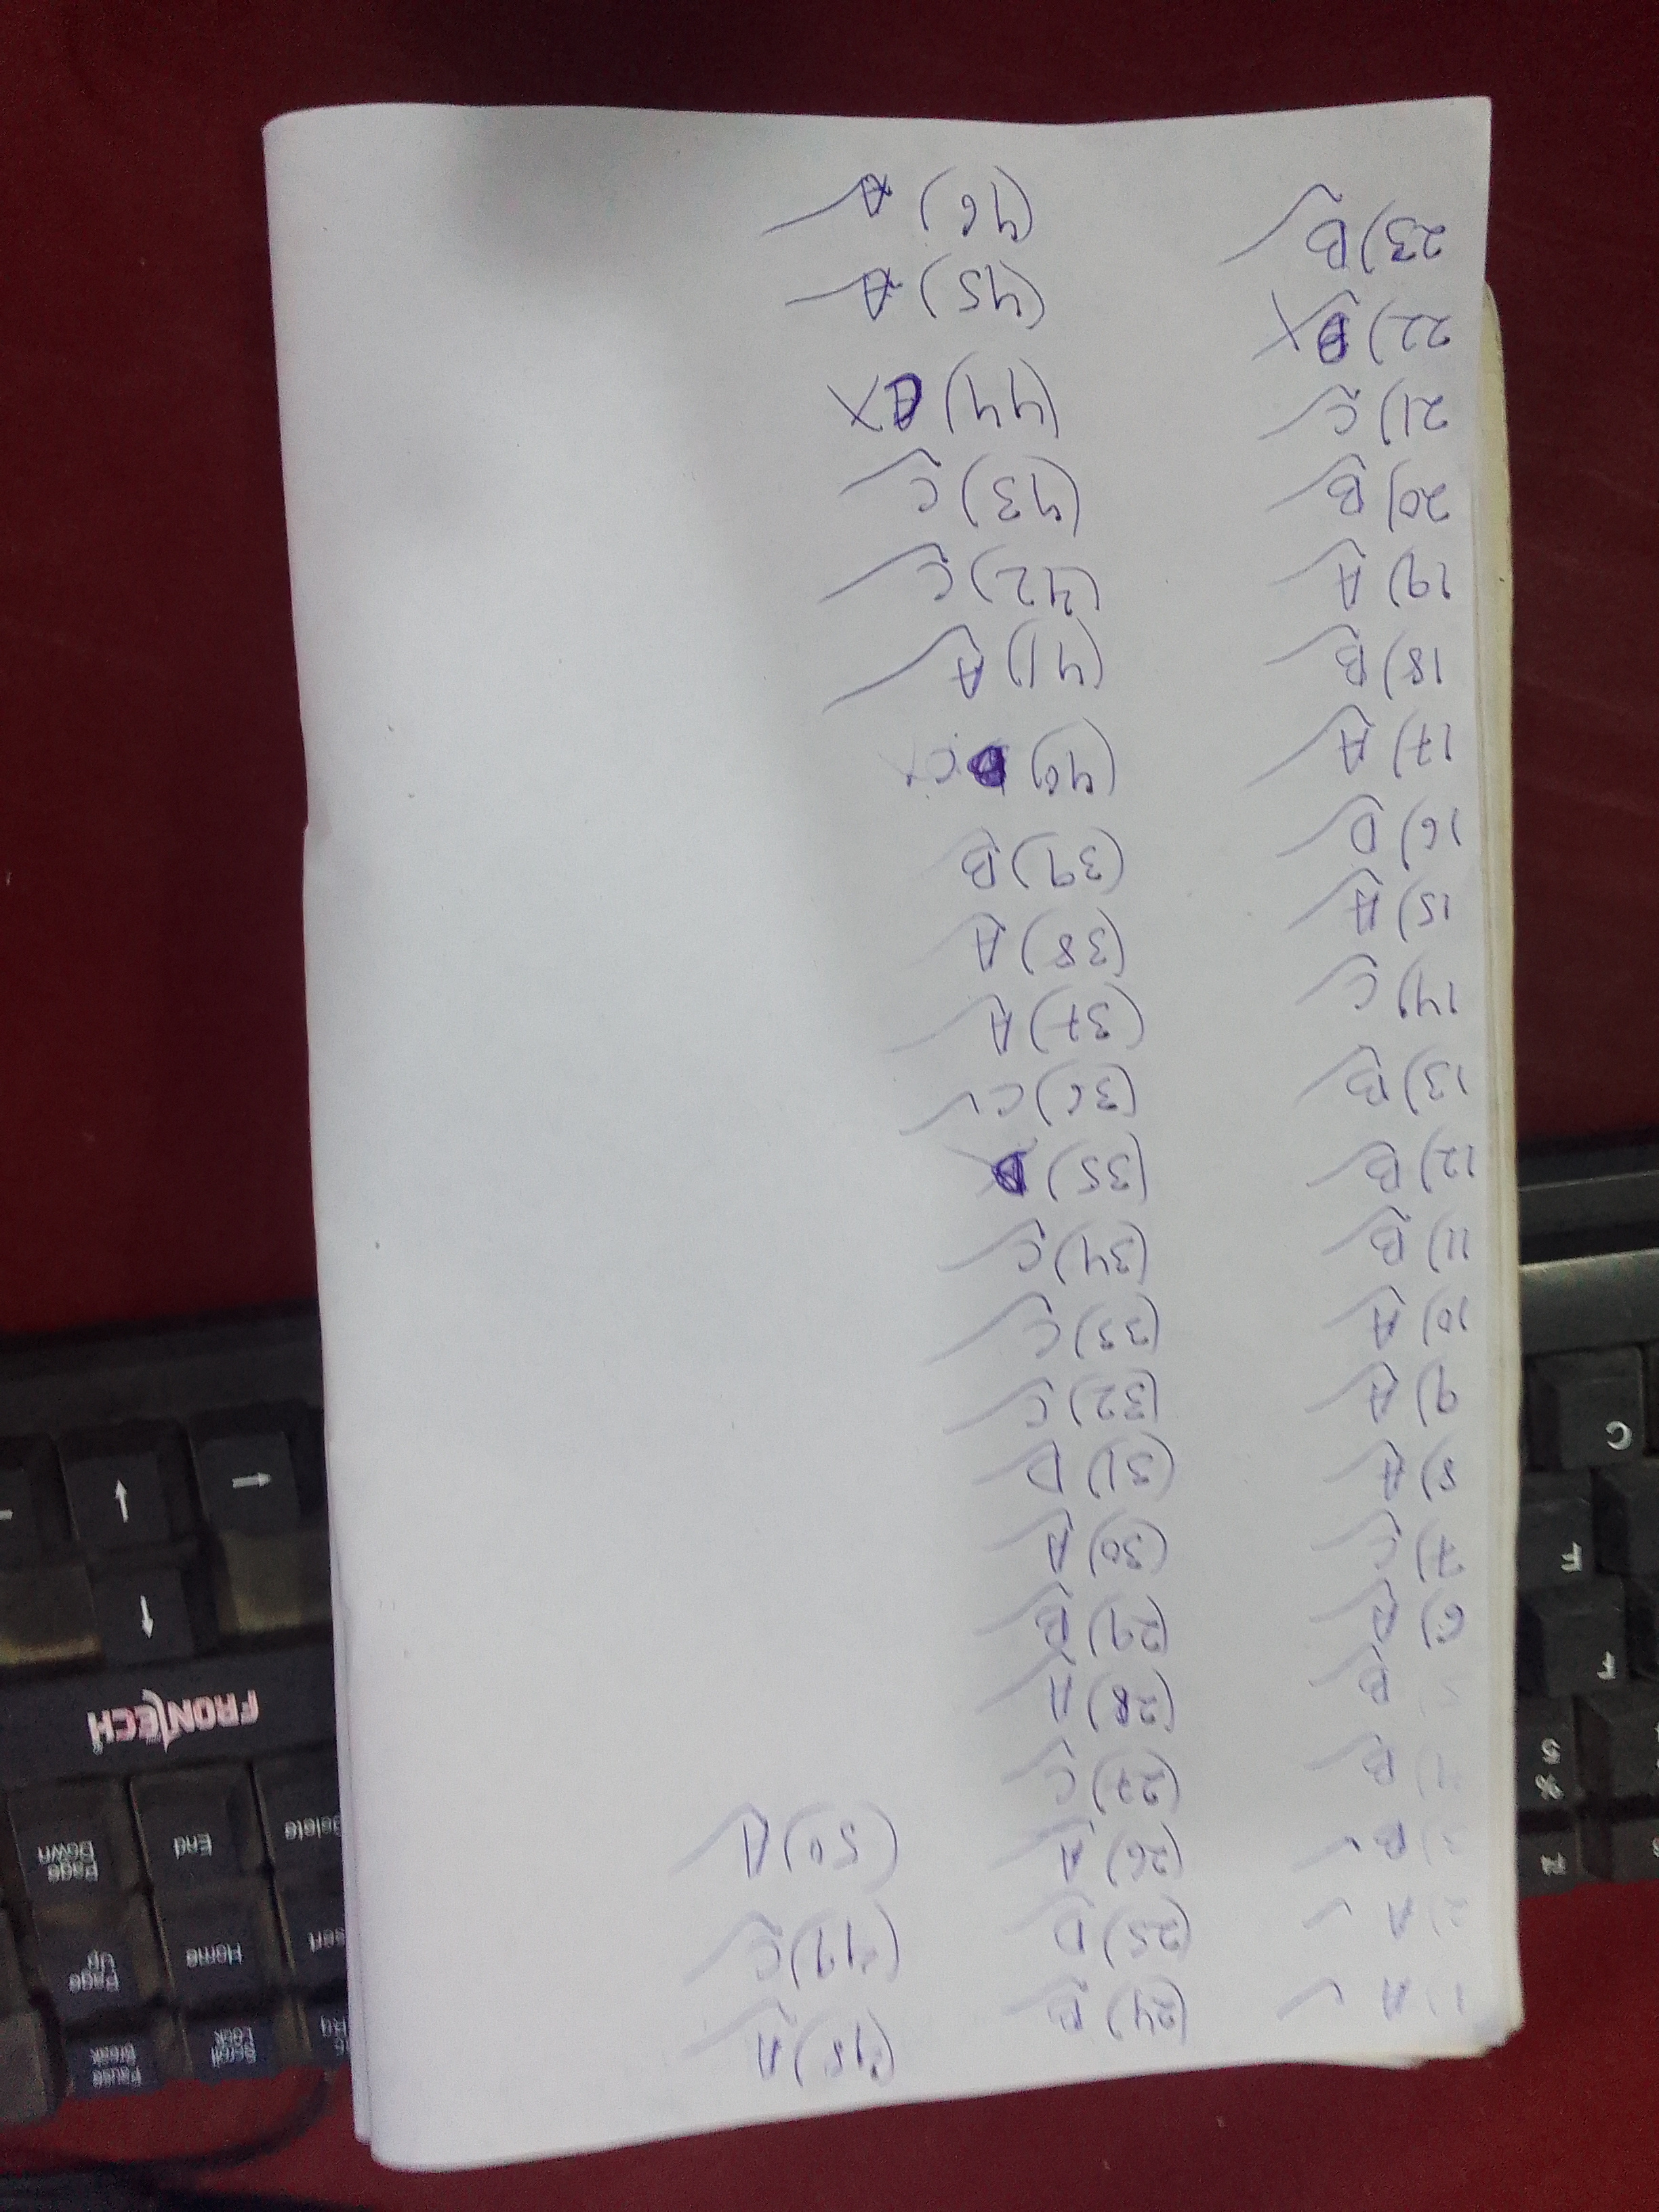 1) A ✓
2) A ✓
3) B ✓
4) B ✓
5) B ✓
6) A ✓
7) C ✓
8) A ✓
9) A ✓
10) A ✓
11) B ✓
12) B ✓
13) B ✓
14) C ✓
15) A ✓
16) D ✓
17) A ✓
18) B ✓
19) A ✓
20) B ✓
21) C ✓
22) B X
23) B ✓
24) B ✓
25) D ✓
26) A ✓
27) C ✓
28) A ✓
29) B ✓
30) A ✓
31) D ✓
32) C ✓
33) C ✓
34) C ✓
35) X
36) C ✓
37) A ✓
38) A ✓
39) B ✓
40) C
41) A ✓
42) C ✓
43) C ✓
44) X
45) A ✓
46) A ✓
48) A ✓
49) C ✓
50) A ✓
Pause Break
Scroll Lock
Page Up
Home
Page Down
End
FRONTECH
5 %
T
F
C